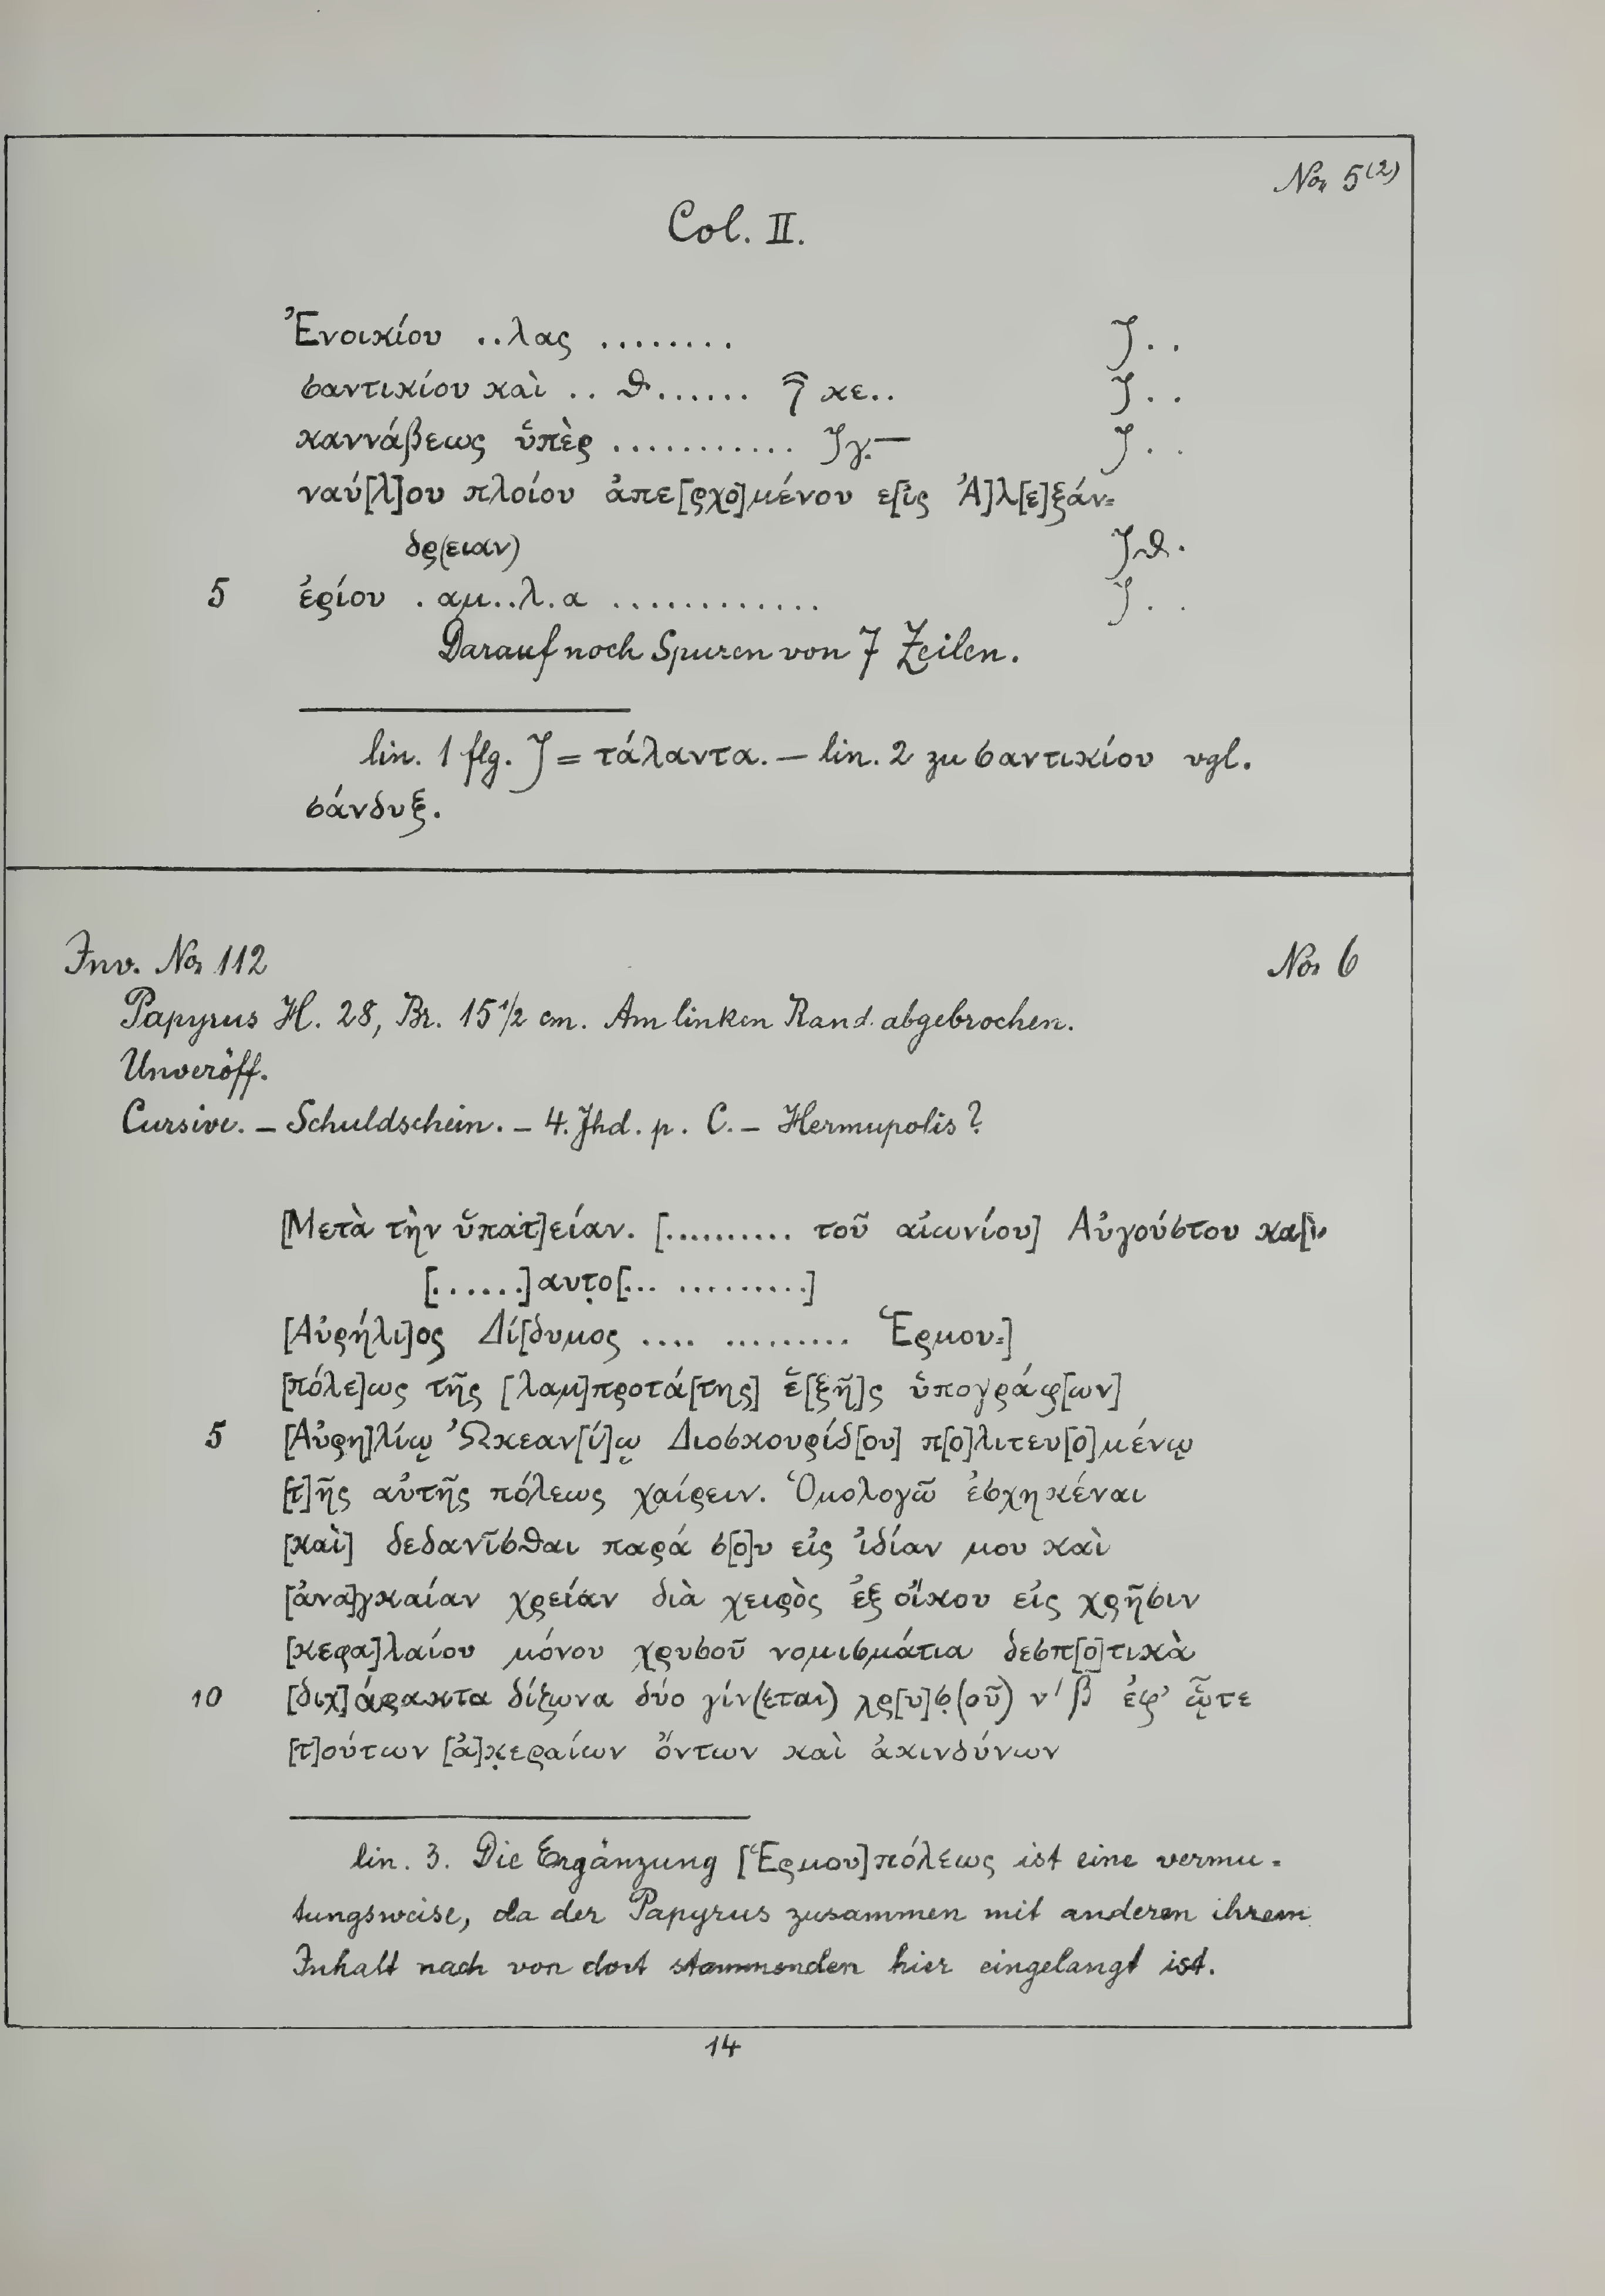 No. 5(2)
Col. II.
Ἐνοικίου ..λας ........ ⟆ . .
σαντικίου καὶ .. θ...... κε.. ⟆ . .
καννάβεως ὕπὲρ ............ ⟆γ.— ⟆ . .
ναύ[λ]ου πλοίου ἀπε[ρχο]μένου ε[ἰς Ἀ]λ[ε]ξάν=
δρ(ειαν) ⟆θ.
5 ἐρίου . αμ..λ.α ............. ⟆ . .
Darauf noch Spuren von 7 Zeilen.
lin. 1 flg. ⟆ = τάλαντα. — lin. 2 zu σαντικίου vgl.
σάνδυξ.
Inv. No. 112 No. 6
Papyrus H. 28, Br. 15 1/2 cm. Am linken Rand abgebrochen.
Unveröff.
Cursive. — Schuldschein. — 4. Jhd. p. C. — Hermupolis?
[Μετὰ τὴν ὕπατ]είαν. [.......... τοῦ αἰωνίου] Αὐγούστου κα[ὶ]
[......]αυτ̣ο[... .........]
[Αὐρήλι]ος Δί[δυμος .... ......... Ἑρμου=]
[πόλε]ως τῆς [λαμ]προτά[της] ἕ[ξῆ]ς ὑπογράφ[ων]
5 [Αὐρη]λίῳ Ὠκεαν[ί]ῳ Διοσκουρίδ[ου] π[ο]λιτευ[ο]μένῳ
[τ]ῆς αὐτῆς πόλεως χαίρειν. Ὁμολογῶ ἐσχηκέναι
[καὶ] δεδανῖσθαι παρά σ[ο]υ εἰς ἰδίαν μου καὶ
[ἀνα]γκαίαν χρείαν διὰ χειρὸς ἐξ οἴκου εἰς χρῆσιν
[κεφα]λαίου μόνου χρυσοῦ νομισμάτια δεσπ[ο]τικὰ
10 [διχ]άρακτα δίζωνα δύο γίν(εται) χρ[υ]σ̣(οῦ) ν′ β̅ ἐφ’ ᾧτε
[τ]ούτων [ἀ]κ̣εραίων ὄντων καὶ ἀκινδύνων
lin. 3. Die Ergänzung [Ἑρμου]πόλεως ist eine vermu=
tungsweise, da der Papyrus zusammen mit anderen ihrem
Inhalt nach von dort stammenden hier eingelangt ist.
14